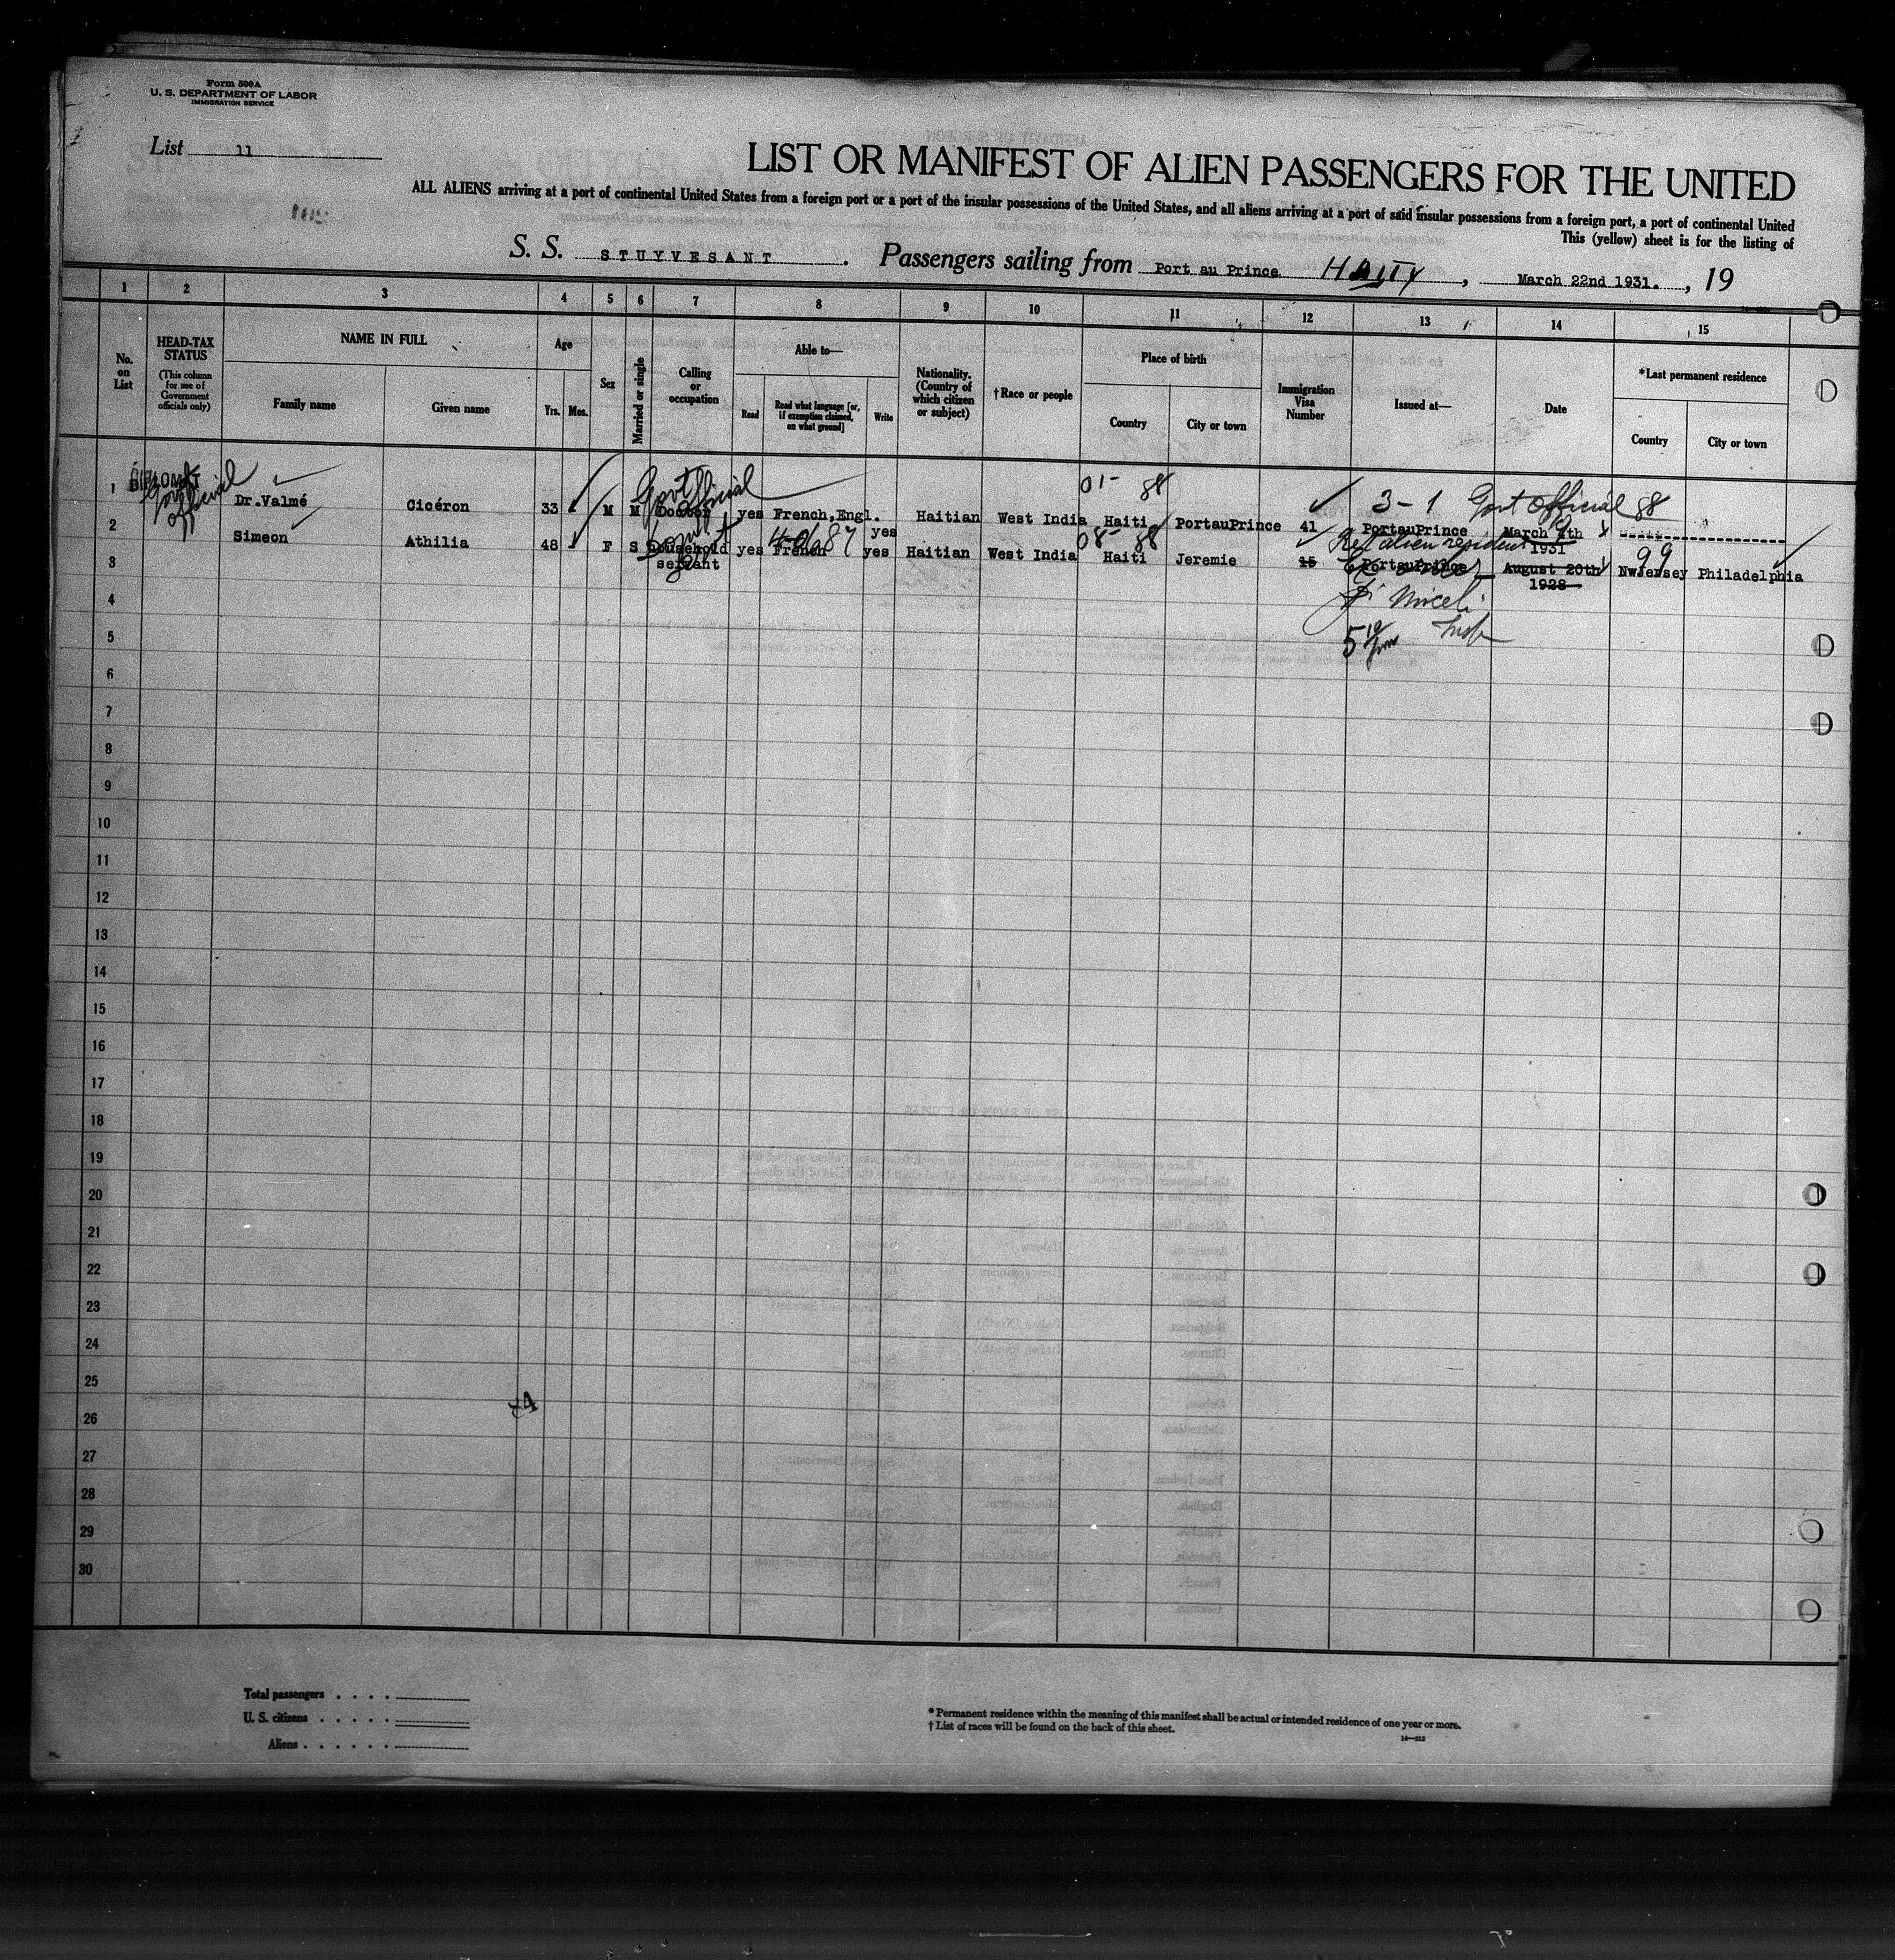 Form 500A
U. S. DEPARTMENT OF LABOR
IMMIGRATION SERVICE
List 11
LIST OR MANIFEST OF ALIEN PASSENGERS FOR THE UNITED
ALL ALIENS arriving at a port of continental United States from a foreign port or a port of the insular possessions of the United States, and all aliens arriving at a port of said insular possessions from a foreign port, a port of continental United
This (yellow) sheet is for the listing of
S. S. STUYVESANT . Passengers sailing from Port au Prince HAITY , March 22nd 1931. , 19
1 2 3 4 5 6 7 8 9 10 11 12 13 14 15
No. on List
HEAD-TAX STATUS
(This column for use of Government officials only)
NAME IN FULL
Family name
Given name
Age
Yrs. Mos.
Sex
Married or single
Calling or occupation
Able to—
Read
Read what language [or, if exemption claimed, on what ground]
Write
Nationality. (Country of which citizen or subject)
†Race or people
Place of birth
Country
City or town
Immigration Visa Number
Issued at—
Date
*Last permanent residence
Country
City or town
DIPLOMAT
Govt official
Govt official
01- 88
3-1 Govt Official 88
1 Dr.Valmé Cicéron 33 M M Doctor yes French,Engl. yes Haitian West India Haiti PortauPrince 41 PortauPrince March 7th 1931
40687
08- 88
Ret alien resident
99
2 Simeon Athilia 48 F S Household servant yes French yes Haitian West India Haiti Jeremie 15 PortauPrince August 20th 1928 NwJersey Philadelphia
Miceli
Insp
3
4
5
6
7
8
9
10
11
12
13
14
15
16
17
18
19
20
21
22
23
24
25
26
27
28
29
30
Total passengers . . . .
U. S. citizens . . . . .
Aliens . . . . . .
* Permanent residence within the meaning of this manifest shall be actual or intended residence of one year or more.
† List of races will be found on the back of this sheet.
14—212